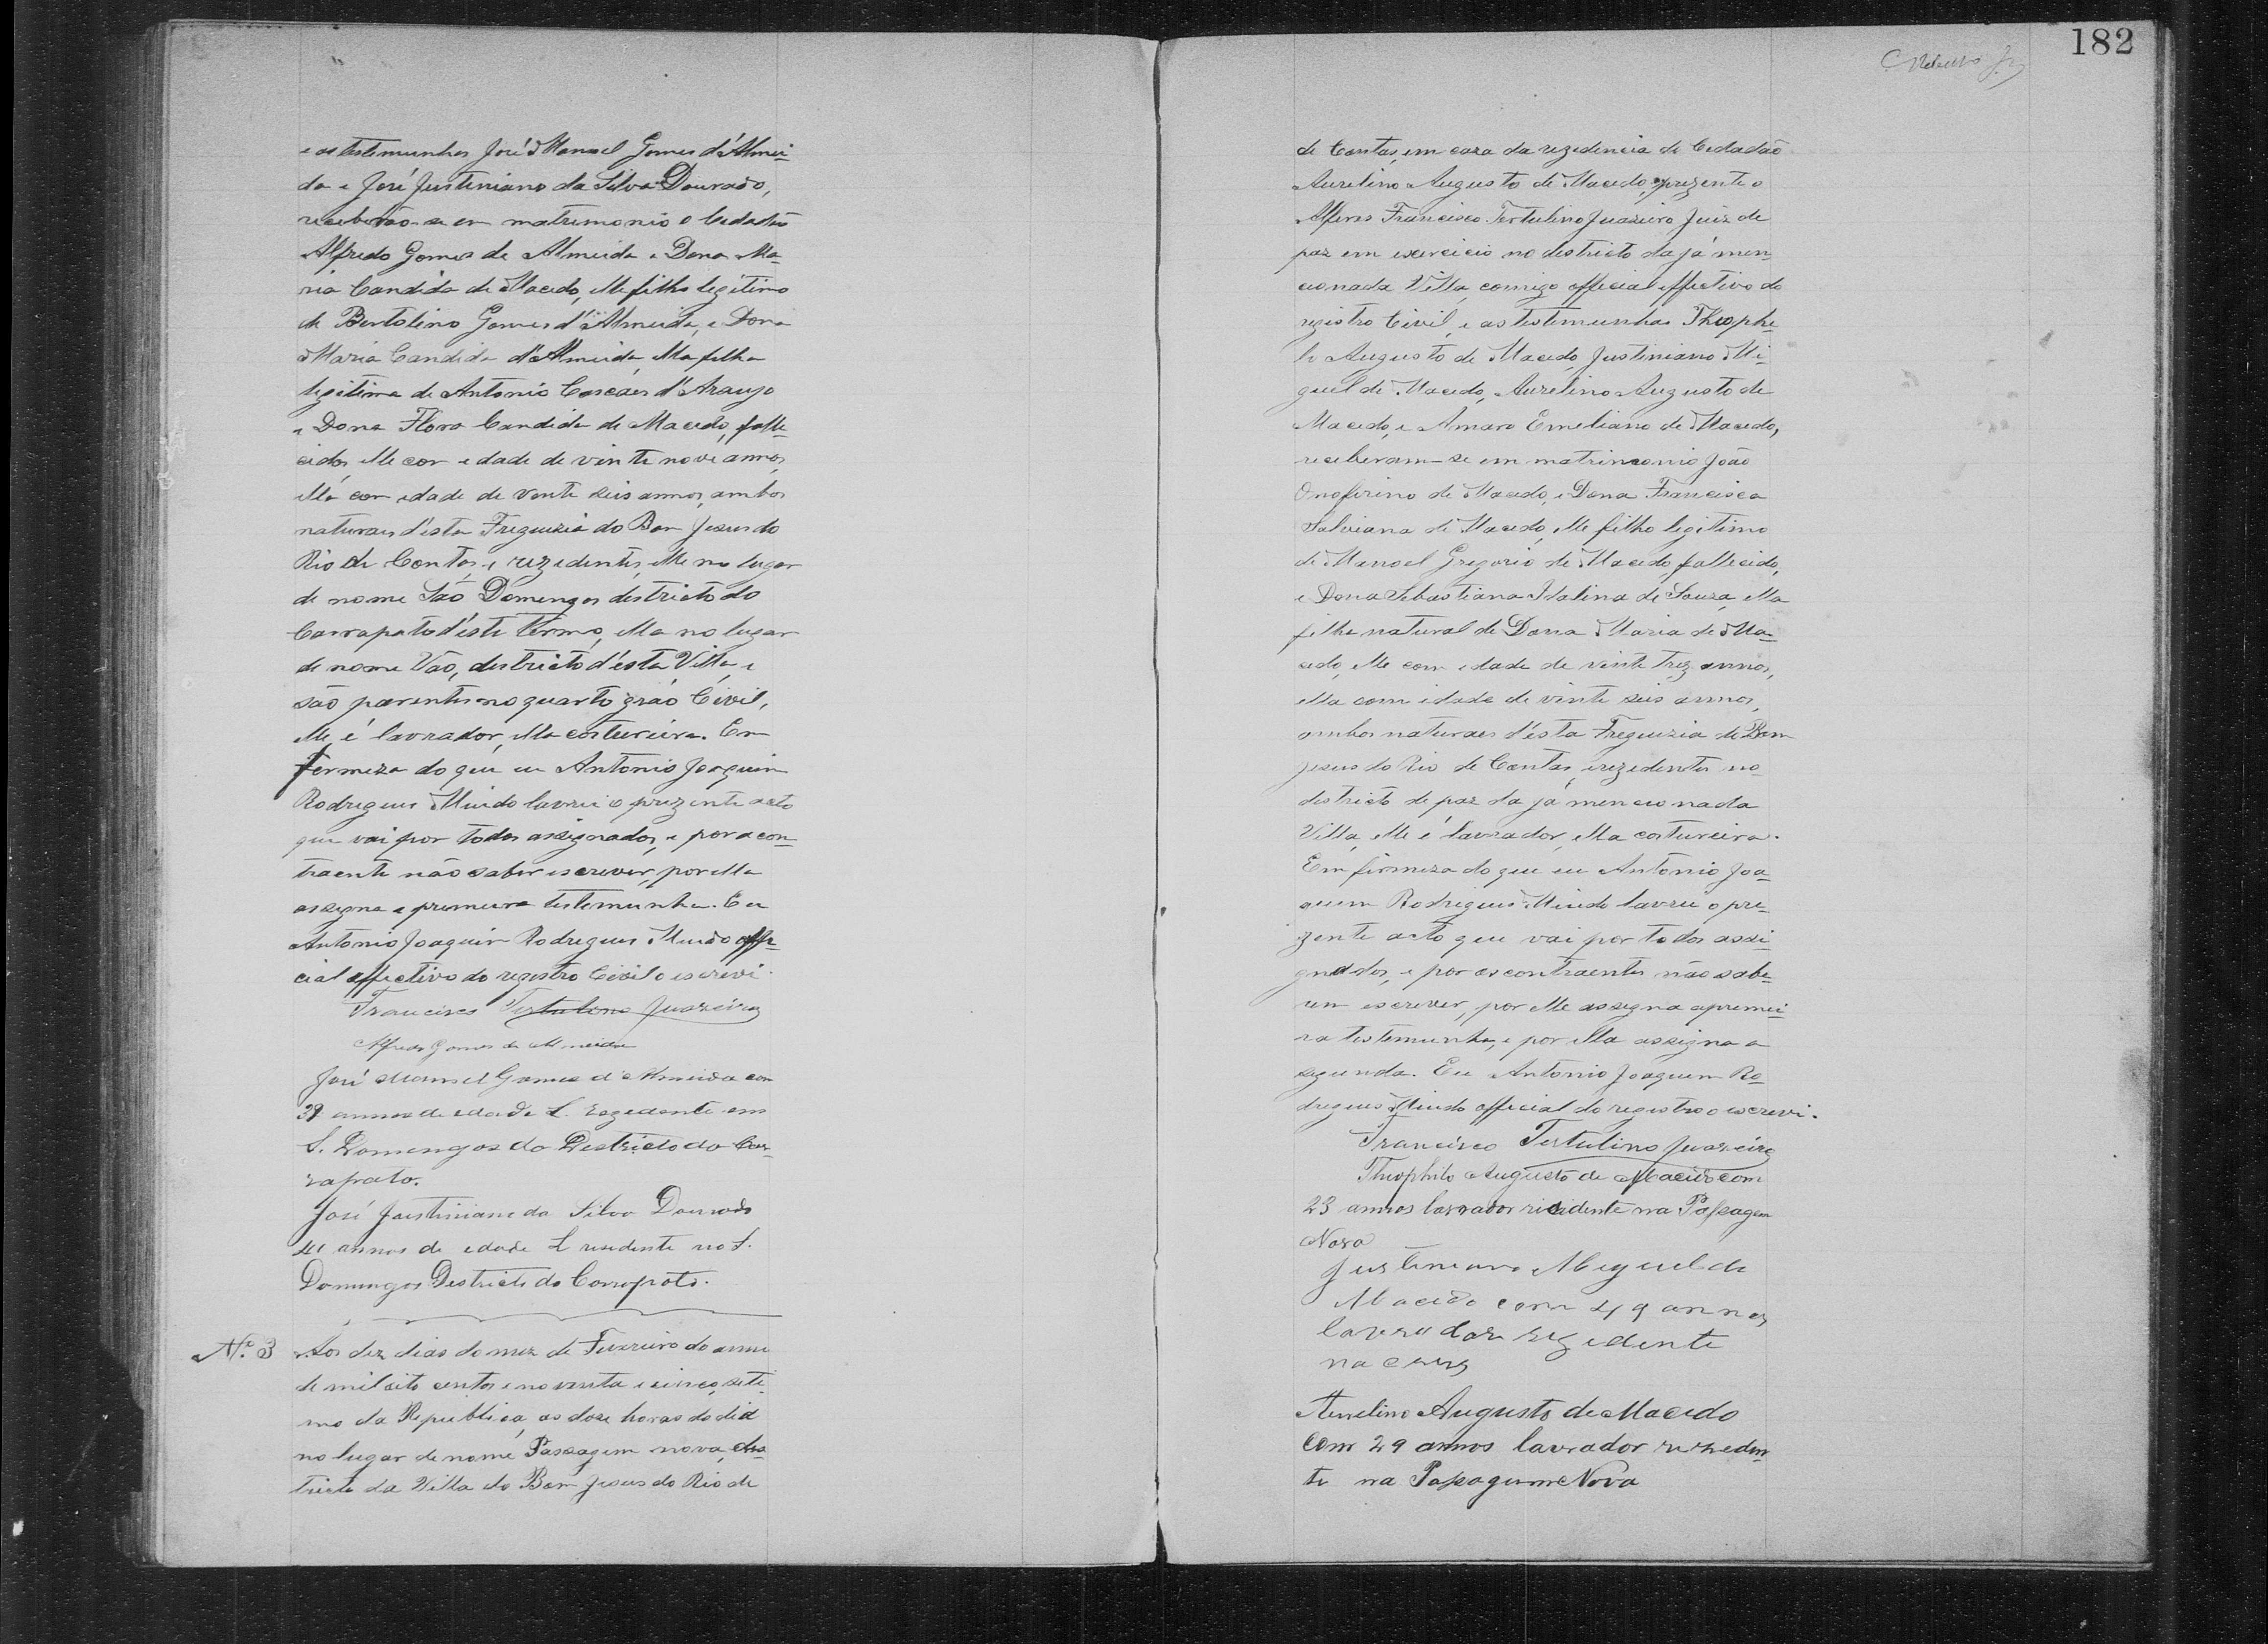 e as testemunhas José Manoel Gomes d'Almei-
da e José Justiniano da Silva Dourado,
receberão-se em matrimonio o Cidadão
Alfredo Gomes de Almeida e Dona Ma-
ria Candida de Macedo, elle filho legitimo
de Bertolino Gomes d'Almeida, e Dona
Maria Candida d'Almeida, ella filha
legitima de Antonio Cascaes d'Araujo
e Dona Flora Candida de Macedo, falle-
cidos, elle com edade de vinte nove annos,
ella com edade de vente seis annos, ambos
naturaes d'esta Freguezia do Bom Jezus do
Rio de Contas, e rezedentes, elle no lugar
de nome São Domengos destricto do
Carrapato d'este termo, ella no lugar
de nome Vão, destricto d'esta Villa, e
são parentes no quarto gráo Civil,
elle é lavrador, ella costureira. Em
fermeza do que eu Antonio Joaquim
Rodrigues Muido lavrei o prezente acto
que vai por todos assignados, e por a con-
traente não saber escrever, por ella
assigna a premeira testemunha. Eu
Antonio Joaquim Rodrigues Muido offi-
cial effectivo do registro Civil o escrevi.
Francisco Tertulino Juazeiro
Alfredo Gomes de Almeida
José Manoel Gomes d'Almeida com
annos de edade L. rezedente em
S. Domengos do Destricto do Car-
rapato.
José Justiniano da Silva Dourado
annos de edade L residente no S.
Domingos Destricto do Carrapato.
N.º 3 Aos dez dias do mez de Fevereiro do anno
de mil oito centos e noventa e cinco, seti-
mo da Republica, as doze horas do dia
no lugar de nome Passagem nova, des-
tricto da Villa do Bom Jesus do Rio de
182
de Contas, em caza da rezedencia do Cedadão
Aurelino Augusto de Macedo, prezente o
Alferes Francisco Tertulino Juazeiro Juiz de
paz em exercicio no destricto da já men-
cionada Villa, comigo official effectivo do
registro Civil, e as testemunhas Theophi-
lo Augusto de Macedo, Justiniano Mi-
guel de Macedo, Aurelino Augusto de
Macedo, e Amaro Emeliano de Macedo,
receberam-se em matrimonio João
Onoferino de Macedo, e Dona Francisca
Salviana de Macedo, elle filho legitimo
de Manoel Gregorio de Macedo fallecido,
e Dona Sebastiana Italina de Souza, ella
filha natural de Dona Maria de Ma-
cedo, elle com edade de vinte trez annos,
ella com idade de vinte seis annos,
ambos naturaes d'esta Freguezia do Bom
Jesus do Rio de Contas, e rezedentes no
destricto de paz da já mencionada
Villa, elle é lavrador, ella costureira.
Em firmeza do que eu Antonio Joa-
quim Rodrigues Muido lavrei o pre-
zente acto que vai por todos assi-
gnados, e por os contraentes não sabe-
rem escrever, por elle assigna a premei-
ra testemunha, e por ella assigna a
segunda. Eu Antonio Joaquim Ro-
drigues Muido official do registro o escrevi.
Francisco Tertulino Juazeiro
Theophilo Augusto de Macedo com
23 annos lavrador residente na Passagem
Nova
Justiniano Miguel de
Macedo com 49 annos
lavrador rezedente
na
Aurelino Augusto de Macedo
com 29 annos lavrador rezeden-
te na Passagem Nova